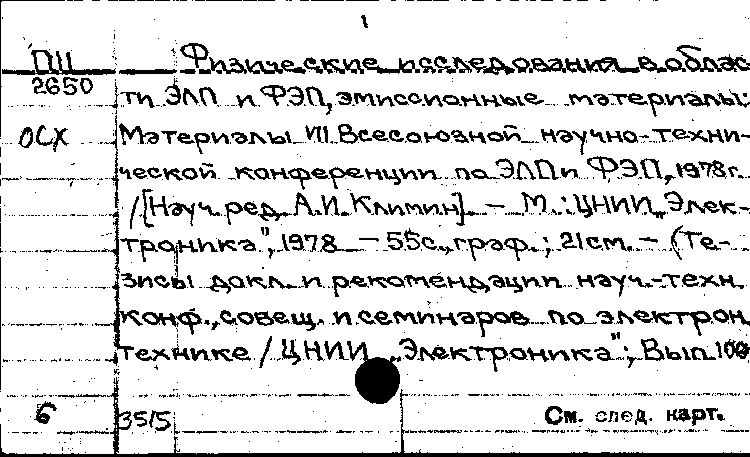 1
ПII Физические исследования в облас
2650 ти ЭЛП и ФЭП, эмиссионные материалы:
ОСХ Материалы VIII Всесоюзной научно-техни-
ческой конференции по ЭЛП и ФЭП, 1978г.
/[Науч. ред. А.И. Климин]. — М.: ЦНИИ „Элек-
троника", 1978 — 55с., граф.; 21см. — (Те-
зисы докл. и рекомендации науч.-техн.
конф., совещ. и семинаров по электрон.
технике / ЦНИИ „Электроника"; Вып. 100
6 3515 См. след. карт.